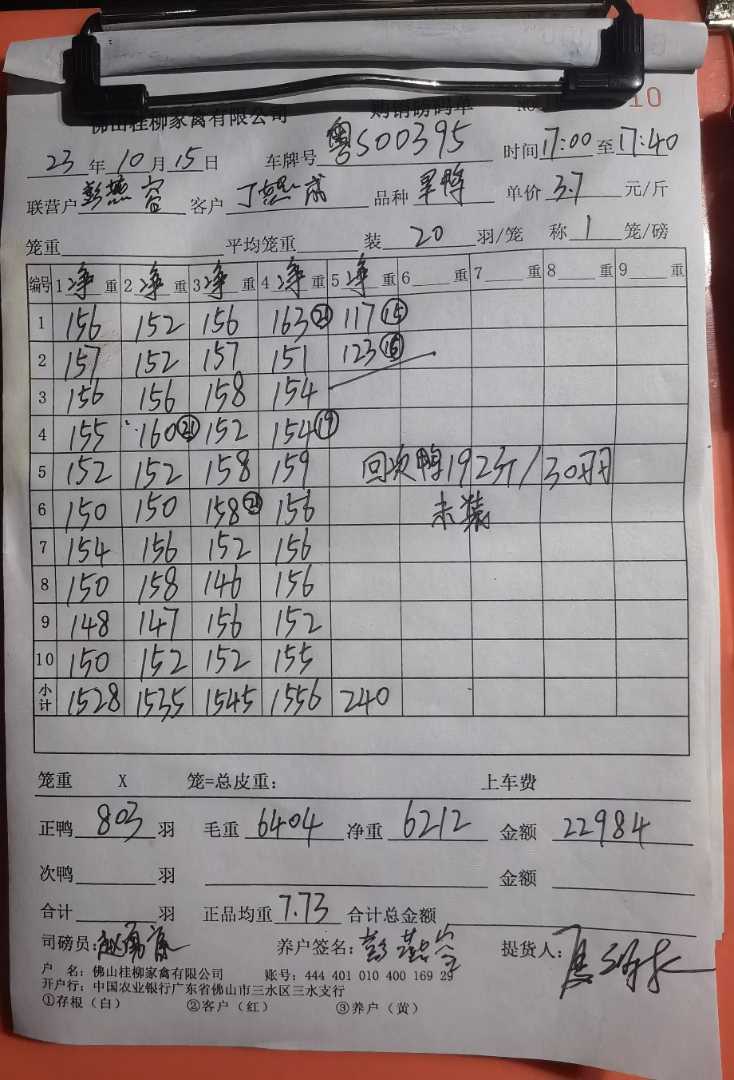 佛山桂柳家禽有限公司 购销磅码单 No 10
23 年 10 月 15 日 车牌号 粤S00395 时间 17:00 至 17:40
联营户 彭燕容 客户 品种 单价 3.7 元/斤
笼重 平均笼重 装 20 羽/笼 称 1 笼/磅
编号 1 净 重 2 净 重 3 净 重 4 净 重 5 净 重 6 重 7 重 8 重 9 重
1 156 152 156 163 21 117 15
2 157 152 157 151 123 16
3 156 156 158 154
4 155 160 21 152 154 19
5 152 152 158 159 回次鸭192斤/30羽
6 150 150 158 21 156 未装
7 154 156 152 156
8 150 158 146 156
9 148 147 156 152
10 150 152 152 155
小计 1528 1535 1545 1556 240
笼重 X 笼=总皮重: 上车费
正鸭 803 羽 毛重 6404 净重 6212 金额 22984
次鸭 羽 金额
合计 羽 正品均重 7.73 合计总金额
司磅员: 养户签名: 彭燕容 提货人:
户 名: 佛山桂柳家禽有限公司 账号: 444 401 010 400 169 29
开户行: 中国农业银行广东省佛山市三水区三水支行
①存根(白) ②客户(红) ③养户(黄)